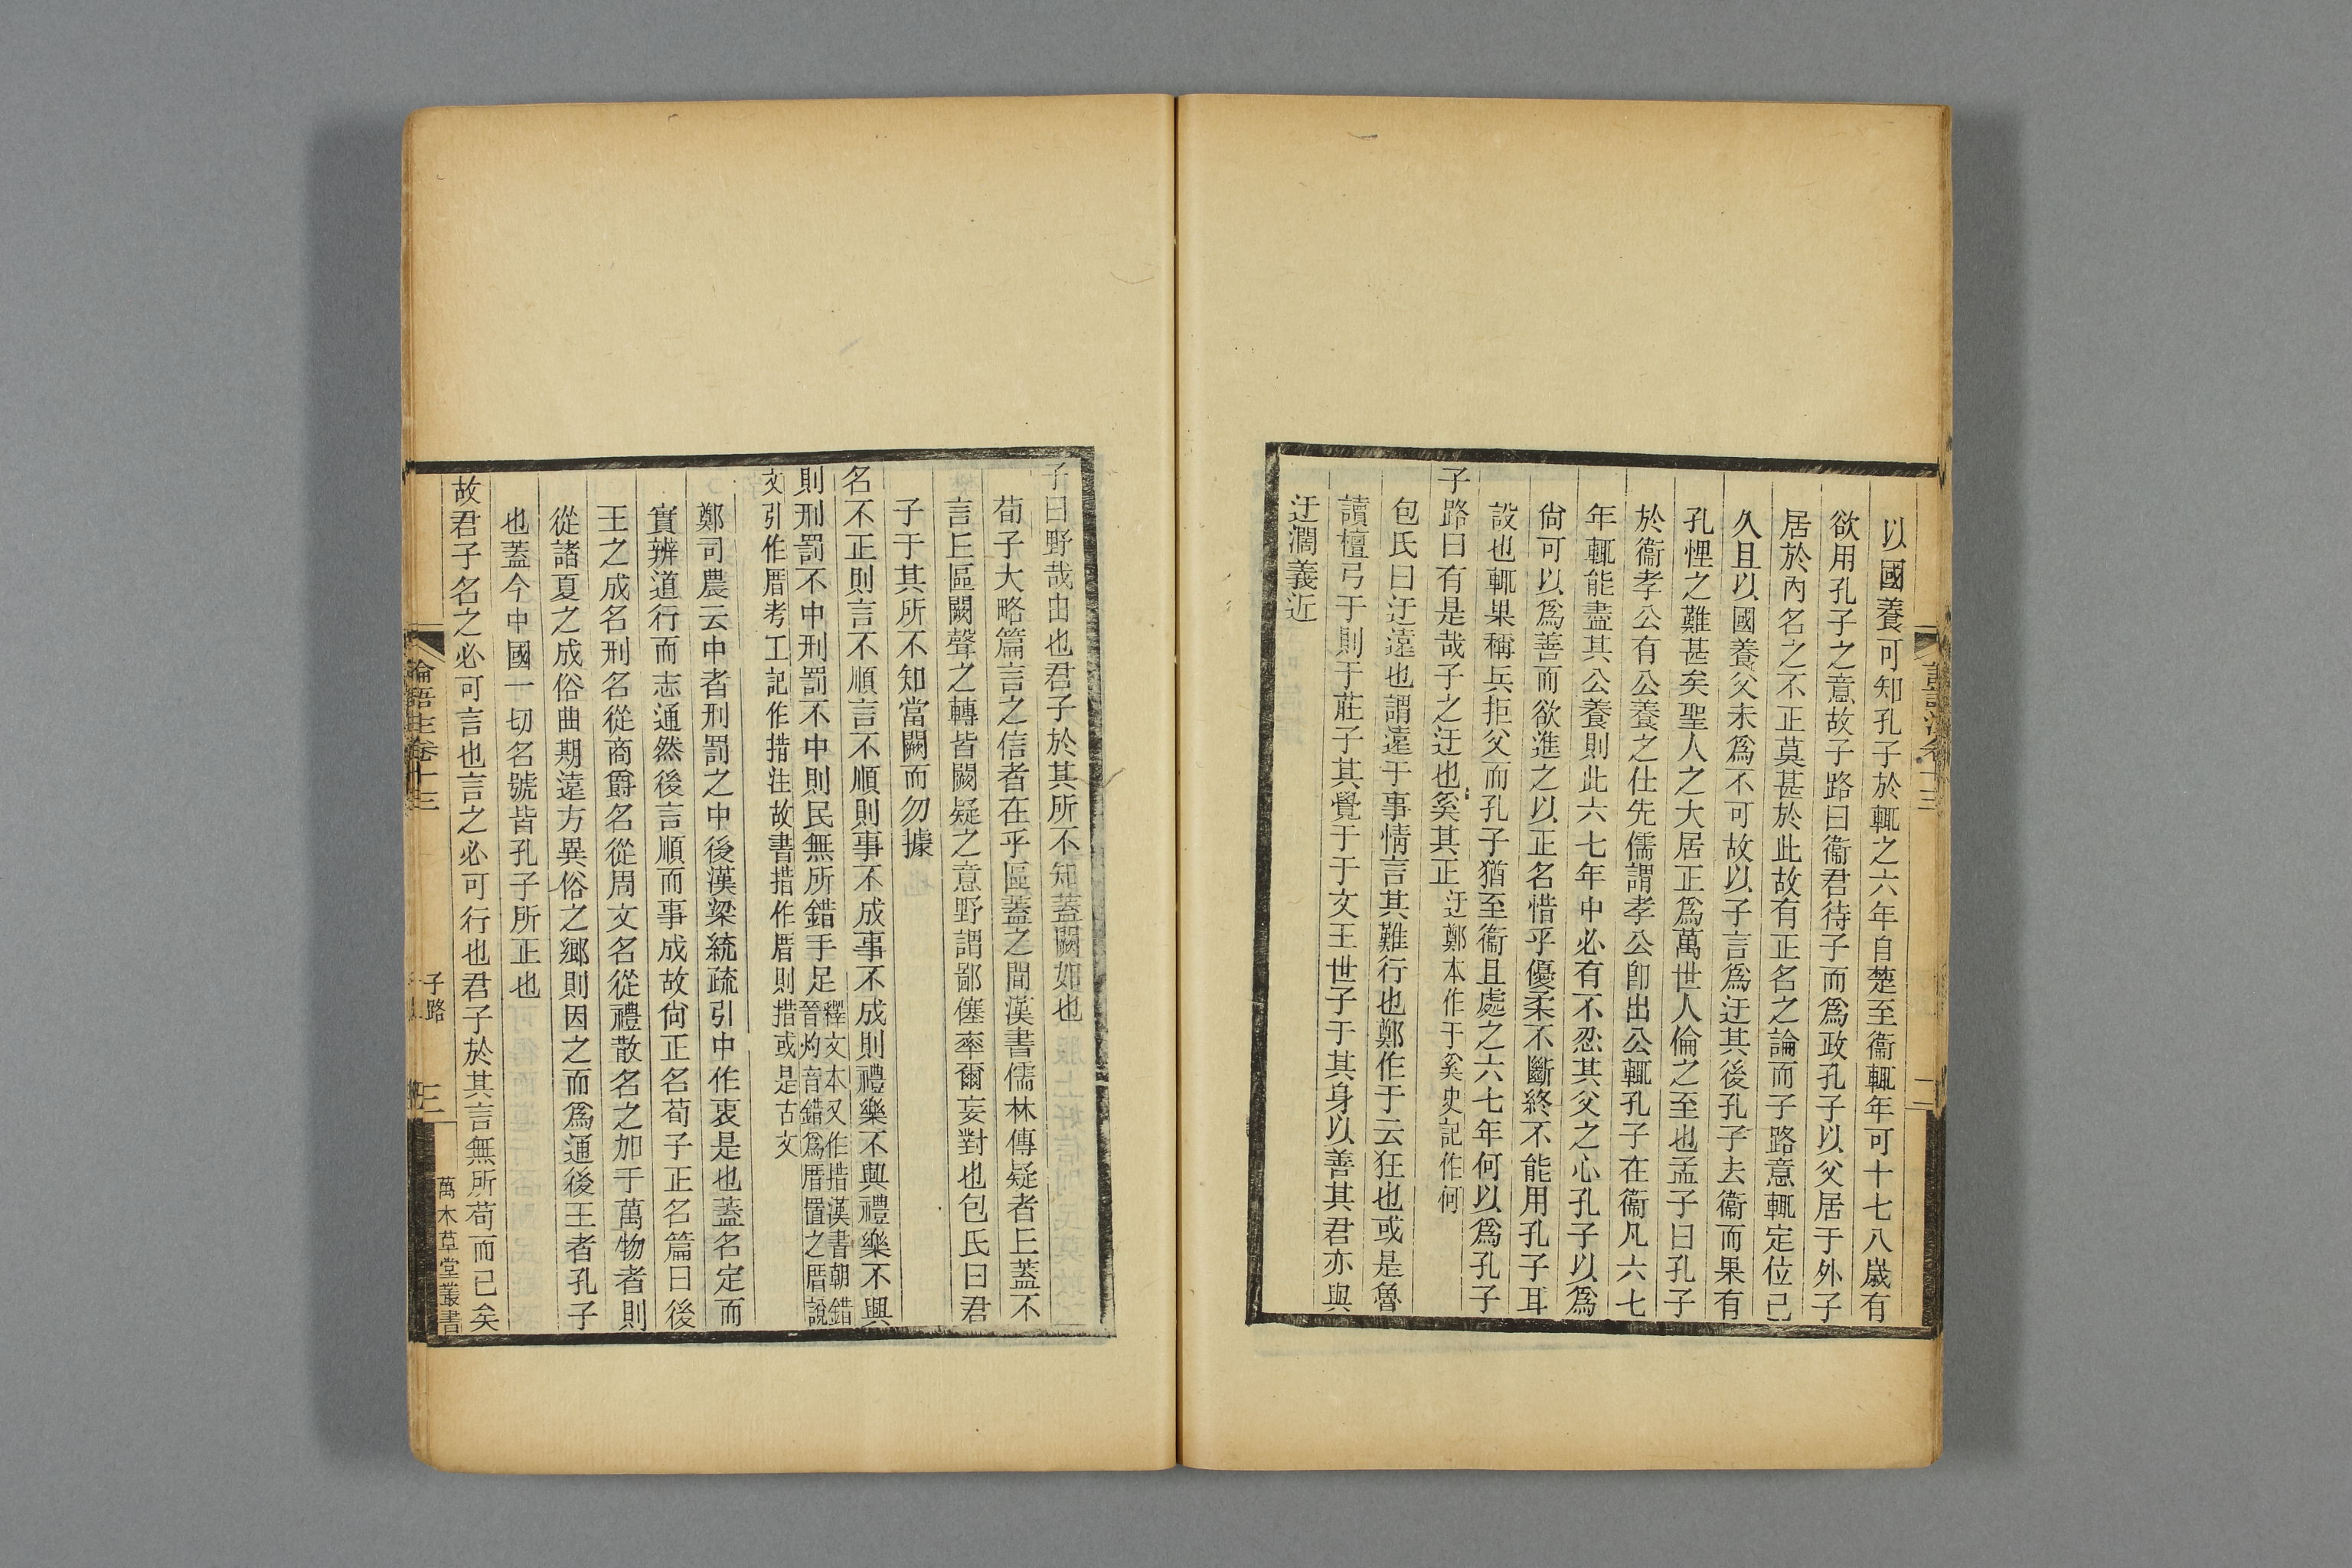 以國養可知孔子於輒之六年自楚至衞輒年可十七八歲有
欲用孔子之意故子路曰衞君待子而爲政孔子以父居于外子
居於內名之不正莫甚於此故有正名之論而子路意輒定位已
久且以國養父未爲不可故以子言爲迂其後孔子去衞而果有
孔悝之難甚矣聖人之大居正爲萬世人倫之至也孟子曰孔子
於衞孝公有公養之仕先儒謂孝公卽出公輒孔子在衞凡六七
年輒能盡其公養則此六七年中必有不忍其父之心孔子以爲
尙可以爲善而欲進之以正名惜乎優柔不斷終不能用孔子耳
設也輒果稱兵拒父而孔子猶至衞且處之六七年何以爲孔子
子路曰有是哉子之迂也奚其正迂鄭本作于奚史記作何
包氏曰迂遠也謂遠于事情言其難行也鄭作于云狂也或是魯
讀檀弓于則于莊子其覺于于文王世子于其身以善其君亦與
迂濶義近
子曰野哉由也君子於其所不知蓋闕如也
荀子大略篇言之信者在乎區蓋之間漢書儒林傳疑者丘蓋不
言丘區闕聲之轉皆闕疑之意野謂鄙僿率爾妄對也包氏曰君
子于其所不知當闕而勿據
名不正則言不順言不順則事不成事不成則禮樂不興禮樂不興
則刑罰不中刑罰不中則民無所錯手足釋文本又作措漢書朝錯
晉灼音錯爲厝置之厝說
文引作厝考工記作措注故書措作厝則措或是古文
鄭司農云中者刑罰之中後漢梁統疏引中作衷是也蓋名定而
實辨道行而志通然後言順而事成故尙正名荀子正名篇曰後
王之成名刑名從商爵名從周文名從禮散名之加于萬物者則
從諸夏之成俗曲期遠方異俗之鄕則因之而爲通後王者孔子
也蓋今中國一切名號皆孔子所正也
故君子名之必可言也言之必可行也君子於其言無所苟而已矣
論語注卷十三
子路
三
萬木草堂叢書